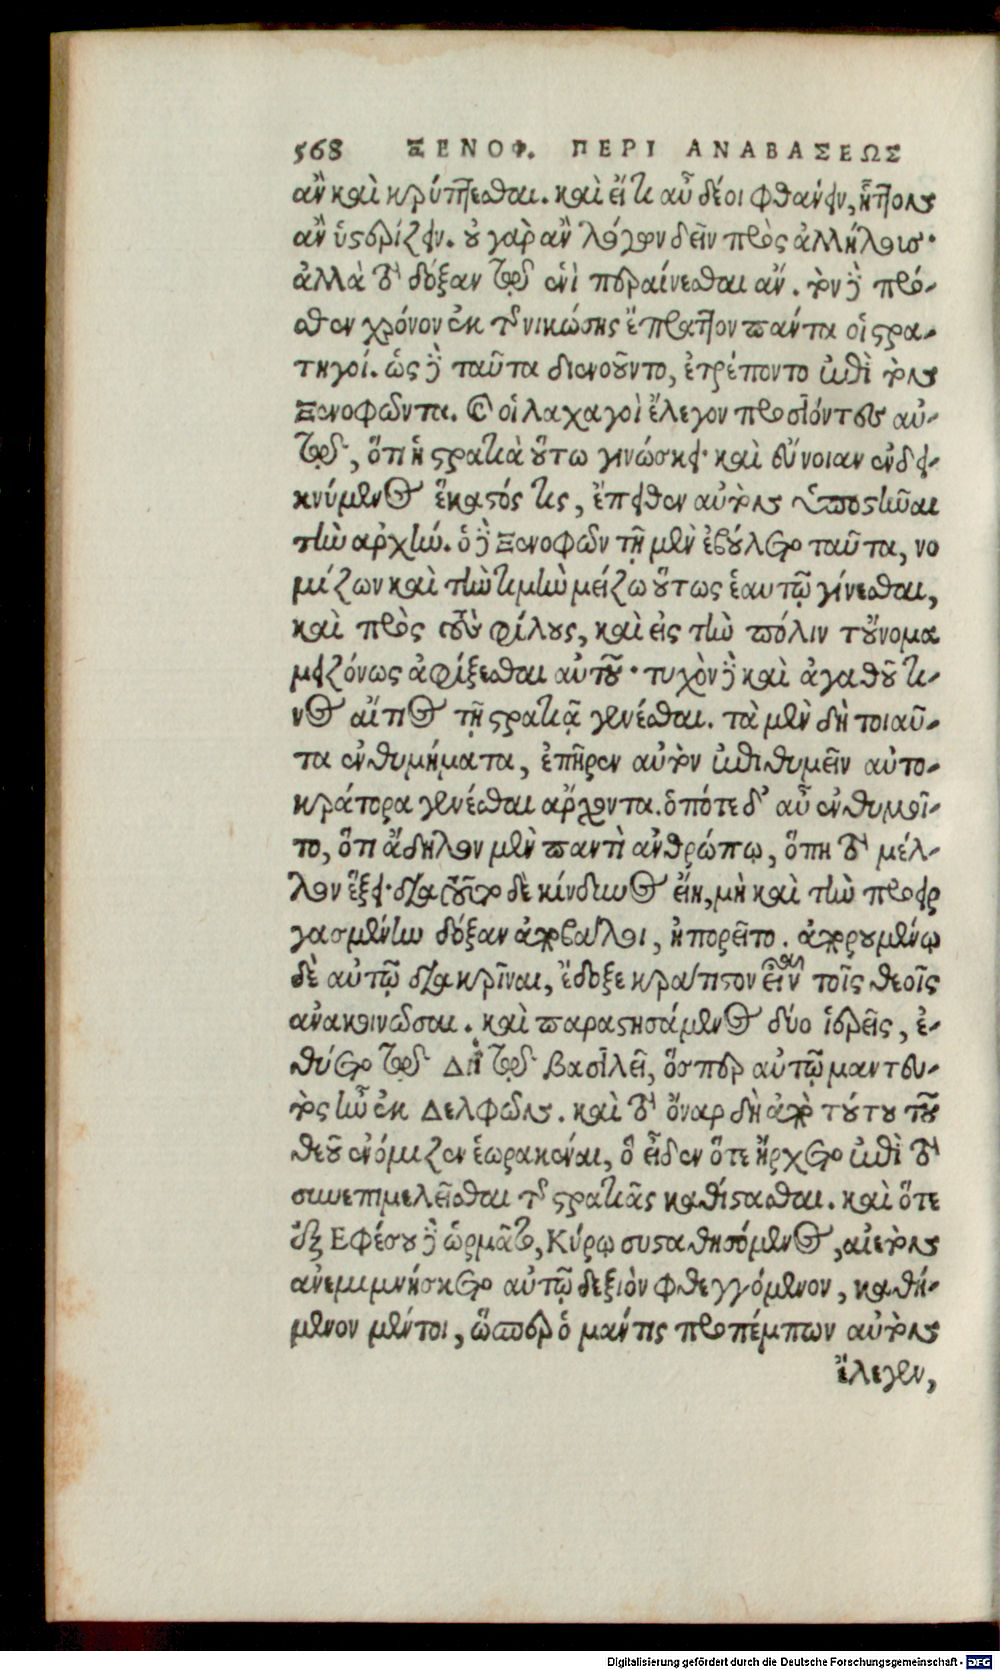 568 ΞΕΝΟΦ. ΠΕΡΙ ΑΝΑΒΑΣΕΩΣ
ἂν καὶ κρύπτεσθαι. καὶ εἴ τι αὖ δέοι φθάνειν, ἧττον
ἂν ὑστερίζειν. οὐ γὰρ ἂν λόγων δεῖν πρὸς ἀλλήλοις·
ἀλλὰ τὸ δόξαν τῷ ἑνὶ περαίνεσθαι ἄν. τὸν δὲ πρό-
σθεν χρόνον ἐκ τῆς νικώσης ἔπραττον πάντα οἱ στρα-
τηγοί. ὡς δὲ ταῦτα διενοοῦντο, ἐτρέποντο ἐπὶ τὸν
Ξενοφῶντα. καὶ οἱ λοχαγοὶ ἔλεγον προσιόντες αὐ-
τῷ, ὅτι ἡ στρατιὰ οὕτω γινώσκει· καὶ εὔνοιαν ἐνδει-
κνύμενος ἕκαστός τις, ἔπειθεν αὐτὸν ὑποστῆναι
τὴν ἀρχήν. ὁ δὲ Ξενοφῶν τῇ μὲν ἐβούλετο ταῦτα, νο
μίζων καὶ τὴν τιμὴν μείζω οὕτως ἑαυτῷ γίνεσθαι,
καὶ πρὸς τοὺς φίλους, καὶ εἰς τὴν πόλιν τοὔνομα
μειζόνως ἀφίξεσθαι αὐτοῦ· τυχὸν δὲ καὶ ἀγαθοῦ τι-
νος αἴτιος τῇ στρατιᾷ γενέσθαι. τὰ μὲν δὴ τοιαῦ-
τα ἐνθυμήματα, ἐπῆρεν αὐτὸν ἐπιθυμεῖν αὐτο-
κράτορα γενέσθαι ἄρχοντα. ὁπότε δ' αὖ ἐνθυμοῖ-
το, ὅτι ἄδηλον μὲν παντὶ ἀνθρώπῳ, ὅπη τὸ μέλ-
λον ἕξει· διὰ τοῦτο δὲ κίνδυνος εἴη, μὴ καὶ τὴν προειρ
γασμένην δόξαν ἀποβάλοι, ἠπορεῖτο. ἀπορουμένῳ
δὲ αὐτῷ διακρῖναι, ἔδοξε κράτιστον εἶναι τοῖς θεοῖς
ἀνακοινῶσαι. καὶ παραστησάμενος δύο ἱερεῖς, ἐ-
θύετο τῷ Διῒ τῷ βασιλεῖ, ὅσπερ αὐτῷ μαντευ-
τὸς ἦν ἐκ Δελφῶν. καὶ τὸ ὄναρ δὴ ἀπὸ τούτου τοῦ
θεοῦ ἐνόμιζεν ἑωρακέναι, ὃ εἶδεν ὅτε ἤρχετο ἐπὶ τὸ
συνεπιμελεῖσθαι τῆς στρατιᾶς καθίστασθαι. καὶ ὅτε
ἐξ Ἐφέσου δὲ ὡρμᾶτο, Κύρῳ συσταθησόμενος, αἰετὸν
ἀνεμιμνήσκετο αὐτῷ δεξιὸν φθεγγόμενον, καθή-
μενον μέντοι, ὥσπερ ὁ μάντις προπέμπων αὐτὸν
ἔλεγεν,
Digitalisierung gefördert durch die Deutsche Forschungsgemeinschaft - DFG